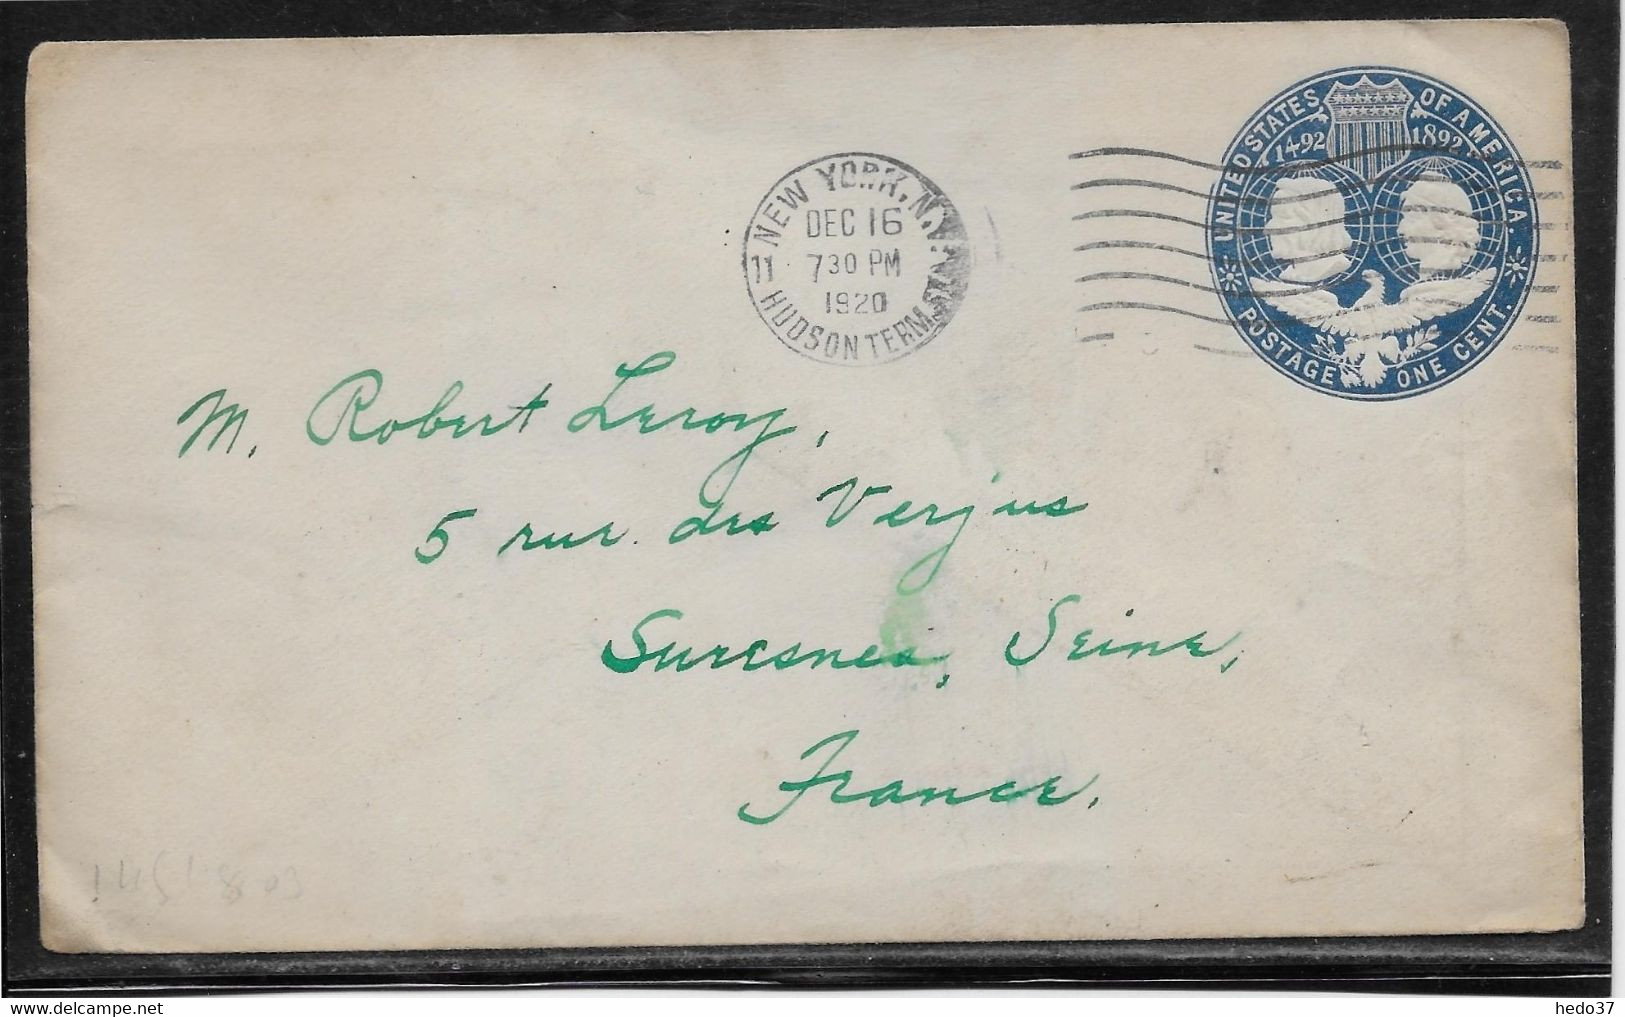 UNITED STATES OF AMERICA.
1492 1892
POSTAGE ONE CENT.
NEW YORK, N.Y.
DEC 16
11 7 30 PM
1920
HUDSON TERM. STA.
M. Robert Leroy,
5 rue des Verjus
Suresnes, Seine,
France.
hedo37